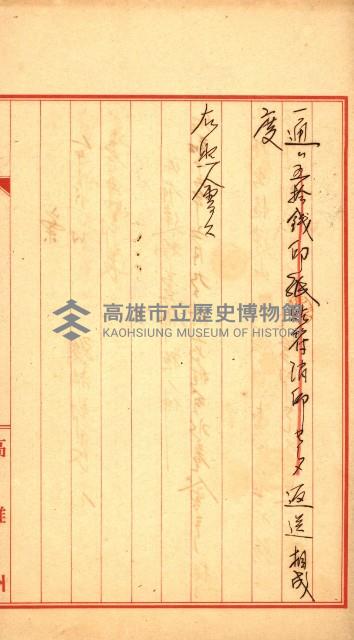 一通ハ五拾錢印紙貼符消印セラ返送相成
度
右照會ス
高雄市立歷史博物館
KAOHSIUNG MUSEUM OF HISTORY
高雄州